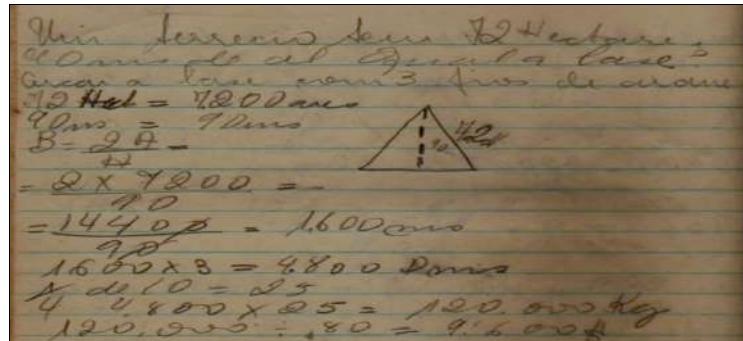 Um terreno tem 72 Hectare,
90ms de al Qual a base?
Cercar a base com 3 fios de arame
72 Hect = 7200 ares
90ms = 9 Dms
B = 2A =
H
= 2 x 7200 =
90
= 14400 = 1.600 ms
90
1.600 x 3 = 4.800 Dms
de 10 = 25
4 4.800 x 25 = 120.000 Kg
120.000 ÷ ,80 = 9.600
72
90